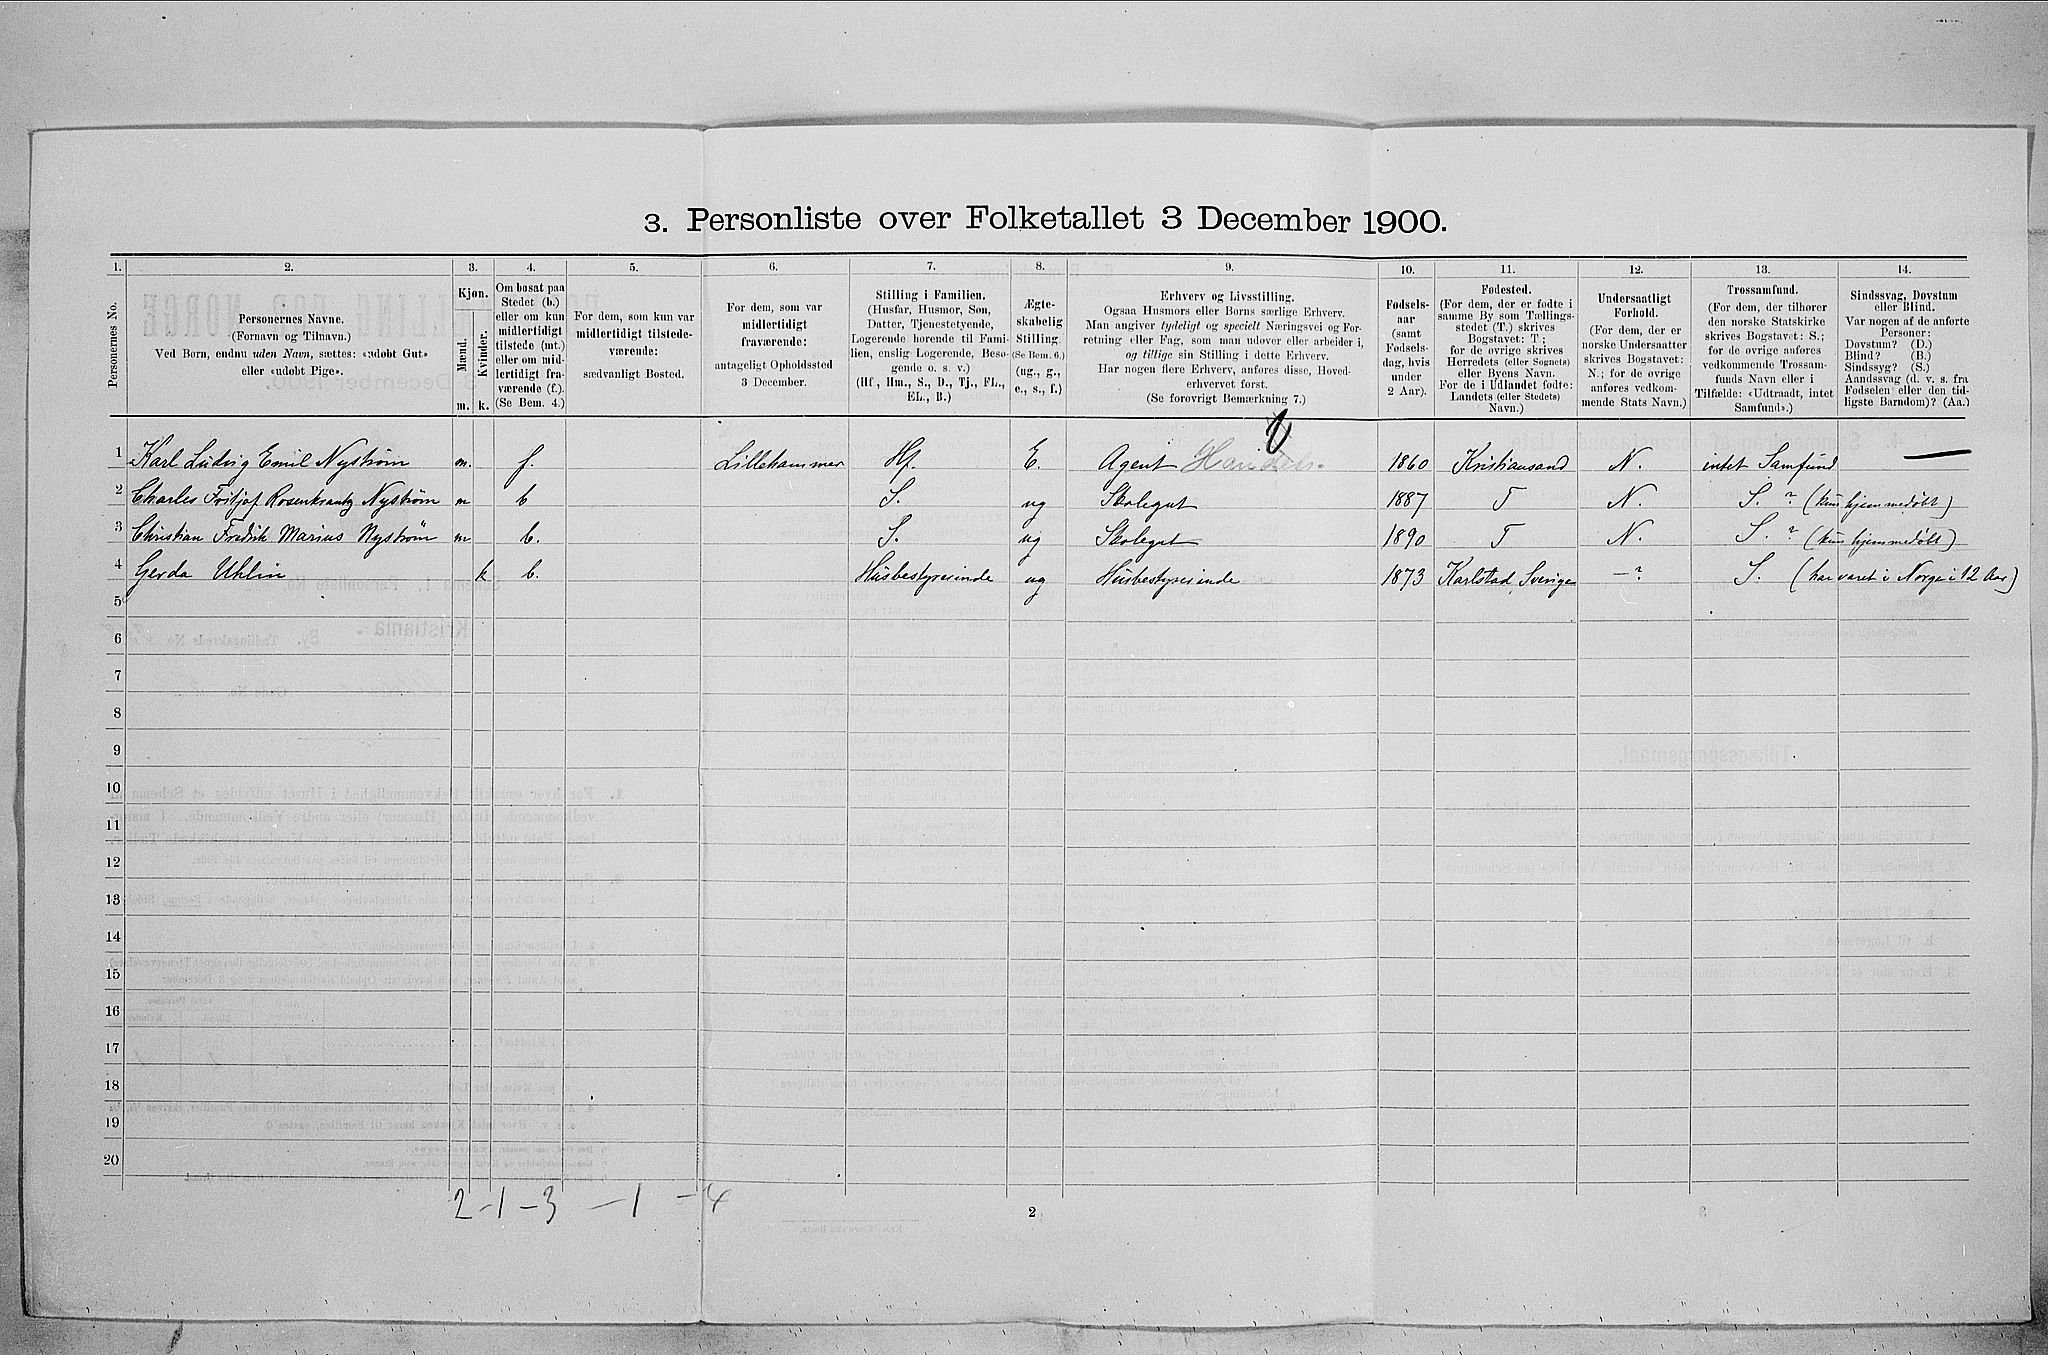 3. Personliste over Folketallet 3 December 1900.
1. 2. 3. 4. 5. 6. 7. 8. 9. 10. 11. 12. 13. 14.
Personernes No.
Personernes Navne.
(Fornavn og Tilnavn.)
Ved Børn, endnu uden Navn, sættes: «udøbt Gut»
eller «udøbt Pige».
Kjøn.
Mænd.
Kvinder.
m. k.
Om bosat paa
Stedet (b.)
eller om kun
midlertidigt
tilstede (mt.)
eller om mid-
lertidigt fra-
værende (f.).
(Se Bem. 4.)
For dem, som kun var
midlertidigt tilstede-
værende:
sædvanligt Bosted.
For dem, som var
midlertidigt
fraværende:
antageligt Opholdssted
3 December.
Stilling i Familien.
(Husfar, Husmor, Søn,
Datter, Tjenestetyende,
Logerende hørende til Fami-
lien, enslig Logerende, Besø-
gende o. s. v.)
(Hf., Hm., S., D., Tj., FL.,
EL., B.)
Ægte-
skabelig
Stilling.
(Se Bem. 6.)
(ug., g.,
e., s., f.)
Erhverv og Livsstilling.
Ogsaa Husmors eller Børns særlige Erhverv.
Man angiver tydeligt og specielt Næringsvei og For-
retning eller Fag, som man udøver eller arbeider i,
og tillige sin Stilling i dette Erhverv.
Har nogen flere Erhverv, anføres disse, Hoved-
erhvervet først.
(Se forøvrigt Bemærkning 7.)
Fødsels-
aar
(samt
Fødsels-
dag, hvis
under
2 Aar).
Fødested.
(For dem, der er fødte i
samme By som Tællings-
stedet (T.) skrives
Bogstavet: T;
for de øvrige skrives
Herredets (eller Sognets)
eller Byens Navn.
For de i Udlandet fødte:
Landets (eller Stedets)
Navn.)
Undersaatligt
Forhold.
(For dem, der er
norske Undersaatter
skrives Bogstavet:
N.; for de øvrige
anføres vedkom-
mende Stats Navn.)
Trossamfund.
(For dem, der tilhører
den norske Statskirke
skrives Bogstavet: S.;
for de øvrige anføres
vedkommende Trossam-
funds Navn eller i
Tilfælde: «Udtraadt, intet
Samfund».)
Sindssvag, Døvstum
eller Blind.
Var nogen af de anførte
Personer:
Døvstum? (D.)
Blind? (B.)
Sindssyg? (S.)
Aandssvag (d. v. s. fra
Fødselen eller den tid-
ligste Barndom)? (Aa.)
1 Karl Ludvig Emil Nystrøm m. f. Lillehammer Hf. E. Agent Handels- 1860 Kristiansand N. intet Samfund —
2 Charles Fritjof Rosenkrantz Nystrøm m b S. ug Skolegut 1887 T N. S. ? (kun hjemmedøbt)
3 Christian Fredrik Marius Nystrøm m b. S. ug Skolegut 1890 T N. S. ? (kun hjemmedøbt)
4 Gerda Uhlin k b. Husbestyrerinde ug Husbestyrerinde 1873 Karlstad, Sverige —? S. (har varet i Norge i 12 Aar)
5
6
7
8
9
10
11
12
13
14
15
16
17
18
19
20
2-1-3 -1 -4
2